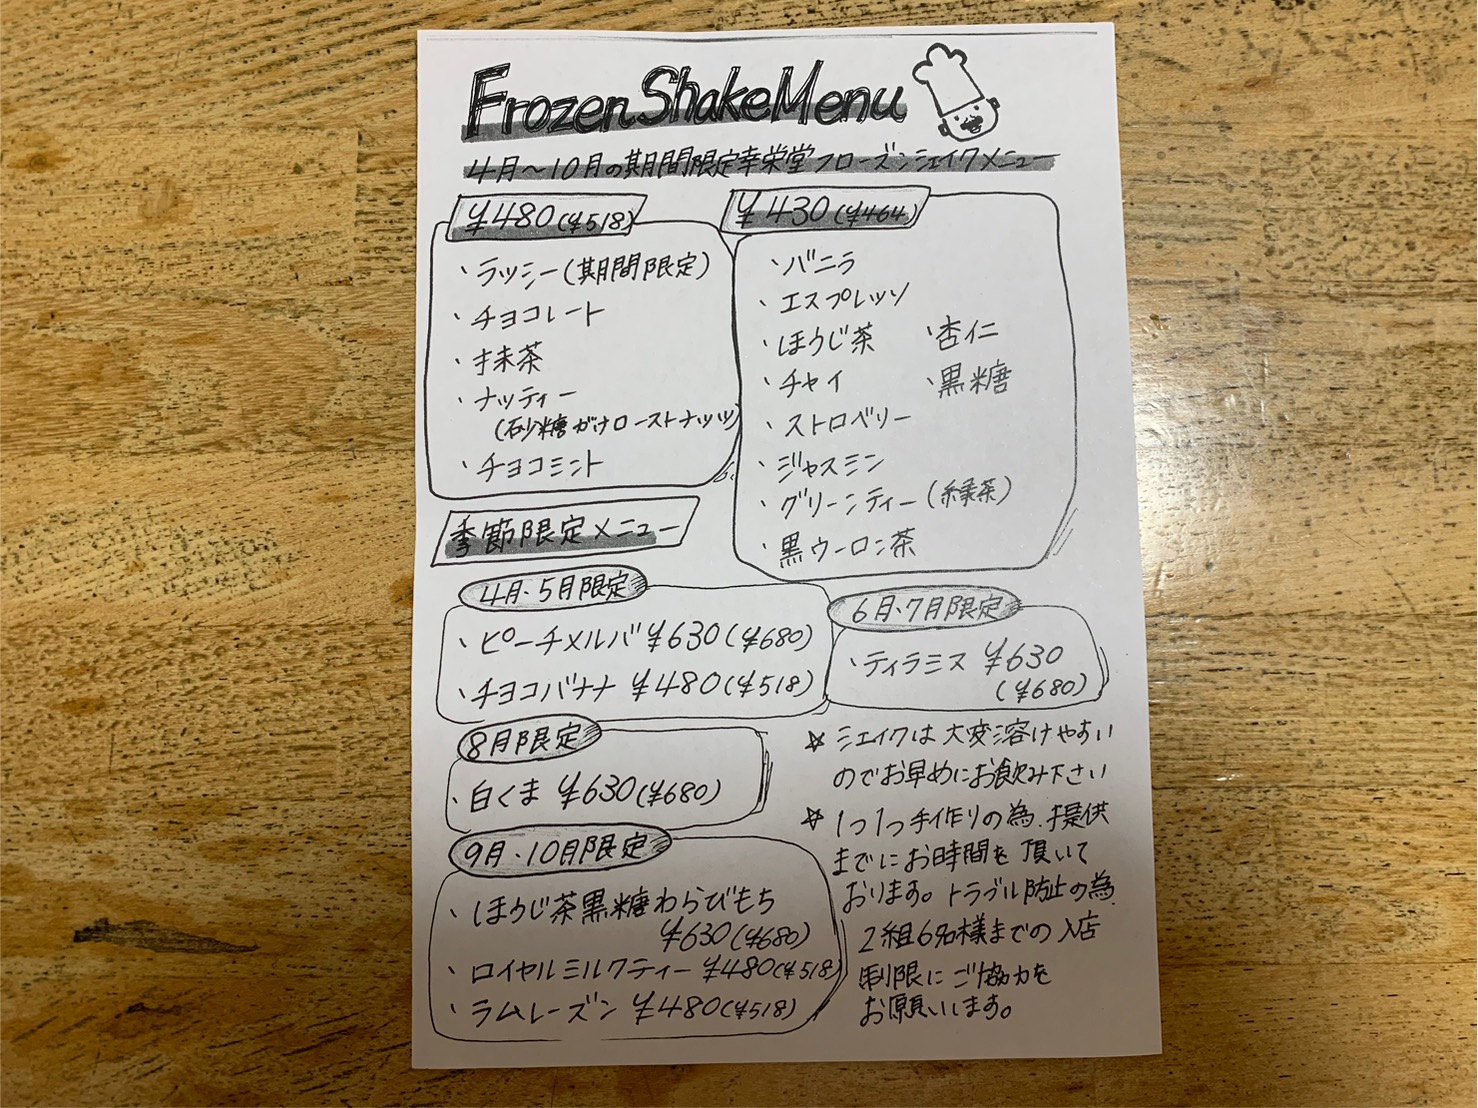 Frozen Shake Menu
4月〜10月の期間限定幸栄堂フローズンシェイクメニュー
¥480(¥518)
・ラッシー(期間限定)
・チョコレート
・抹茶
・ナッティー
(砂糖がけローストナッツ)
・チョコミント
¥430(¥464)
・バニラ
・エスプレッソ
・ほうじ茶 ・杏仁
・チャイ ・黒糖
・ストロベリー
・ジャスミン
・グリーンティー(緑茶)
・黒ウーロン茶
季節限定メニュー
4月・5月限定
・ピーチメルバ ¥630(¥680)
・チョコバナナ ¥480(¥518)
6月・7月限定
・ティラミス ¥630
(¥680)
8月限定
・白くま ¥630(¥680)
9月・10月限定
・ほうじ茶黒糖わらびもち
¥630(¥680)
・ロイヤルミルクティー ¥480(¥518)
・ラムレーズン ¥480(¥518)
☆ シェイクは大変溶けやすい
のでお早めにお飲み下さい
☆ 1つ1つ手作りの為、提供
までにお時間を頂いて
おります。トラブル防止の為
2組6名様までの入店
制限にご協力を
お願いします。